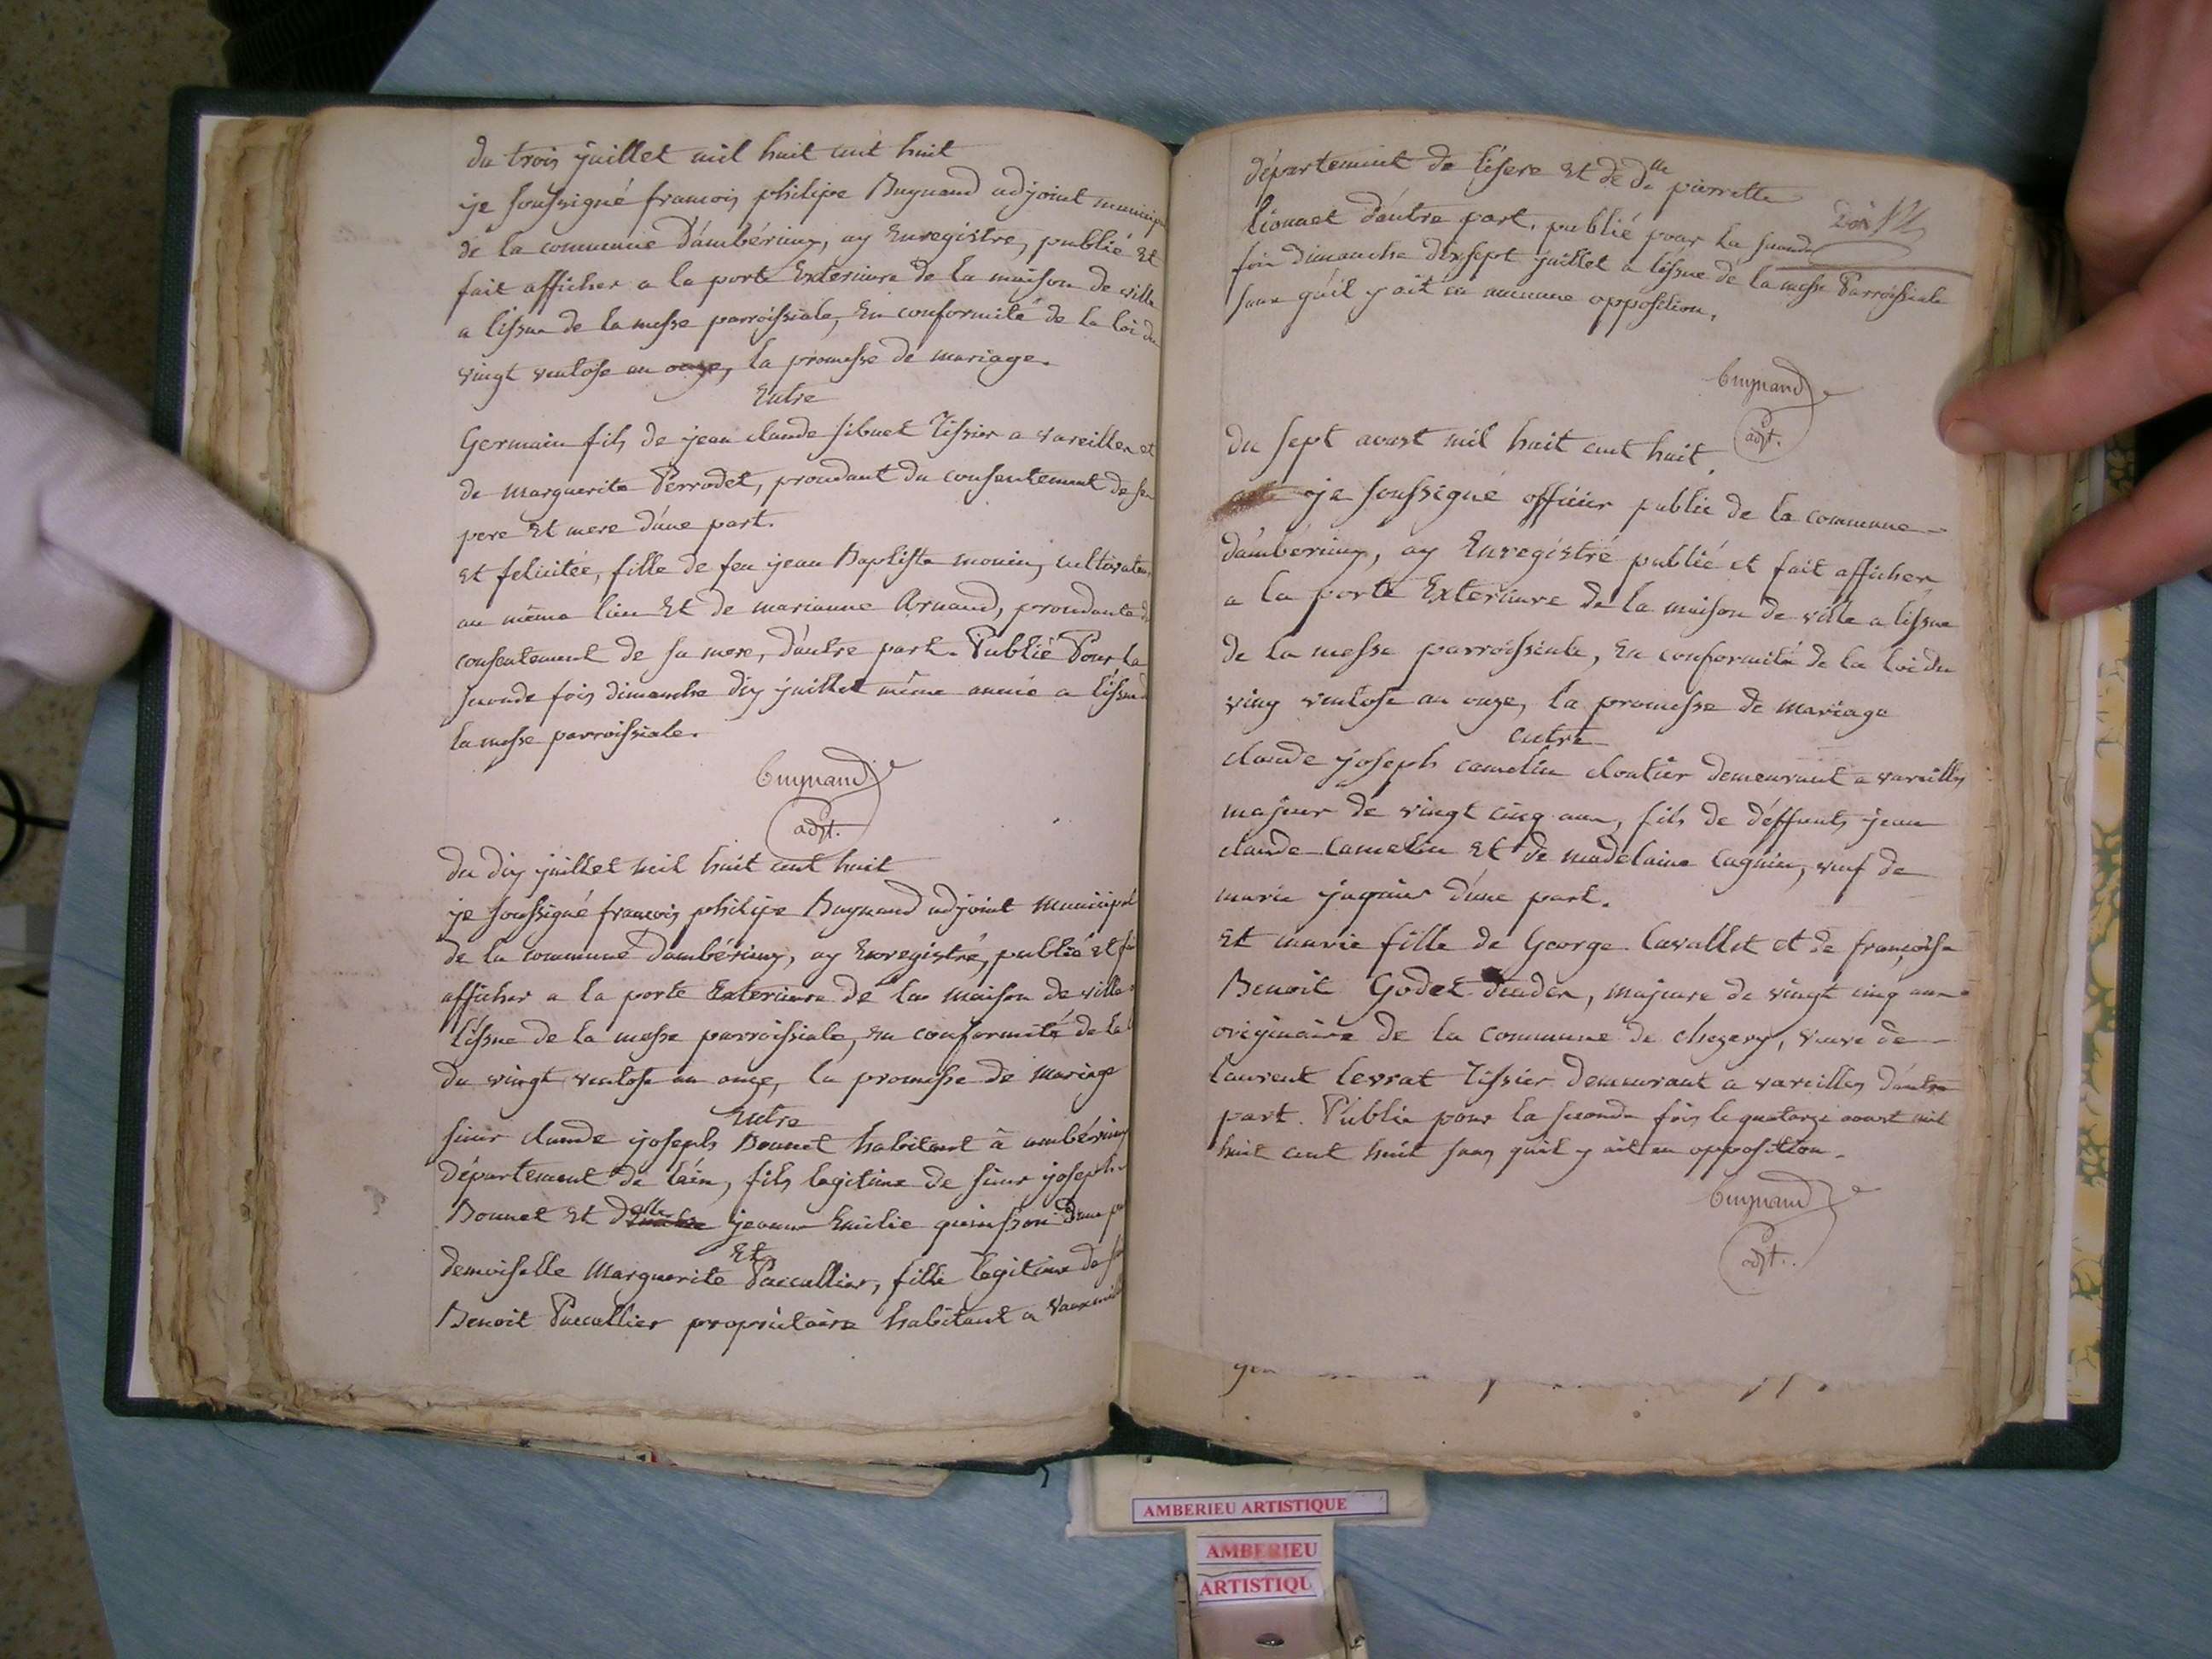 du trois juillet mil huit cent huit
je soussigné francois philipe Buynand adjoint municipal
de la commune d'ambérieux, ay Enregistre, publié Et
fait afficher a la porte Exterieure de la maison de ville
a l'issue de la messe parroissiale, En conformité de la loi du
vingt ventose an onze, la promesse de mariage.
Entre
Germain fils de jean claude sibuet Tissier a vareilles et
de Marguerite Perrodet, procedant du consentement de ses
pere Et mere d'une part.
Et felicitée, fille de feu jean Baptiste monin, cultivateur
au même lieu Et de marianne Arnaud, procedante du
consentement de sa mere, d'autre part. Publié Pour la
seconde fois dimanche dix juillet même année a l'issue
la messe parroissiale.
Buynand
adjt.
du dix juillet mil huit cent huit
je soussigné francois philipe Buynand adjoint Municipal
de la commune d'ambérieux, ay Enregistré, publié Et
afficher a la porte Exterieure de la maison de ville
l'issue de la messe parroissiale, en conformité de la
du vingt ventose an onze, la promesse de Mariage
Entre
sieur claude joseph Bonnet habitant à ambérieux
département de l'ain, fils legitime de sieur joseph
Bonnet et delle jeanne Emilie quinsson d'une
Et
demoiselle Marguerite Paccallier, fille legitime de
Benoit Paccallier propriétaire habitant a
département de l'isere Et de Dlle pierrette
lionnet d'autre part, publié pour la seconde
fois dimanche dixsept juillet a l'issue de la messe Parroissiale
sans qu'il y ait eu aucune opposition.
Buynand
adjt.
du sept aoust mil huit cent huit.
je soussigné officier public de la commune
d'ambérieux, ay Enregistré publié et fait afficher
a la porte Exterieure de la maison de ville a l'issue
de la messe parroissiale, En conformité de la loi du
ving ventose an onze, la promesse de Mariage
entre
claude joseph camelin cloutier demeurant a vareilles
majeur de vingt cinq ans, fils de déffunts jean
claude camelin Et de madelaine cagnin, veuf de
marie d'une part.
Et marie fille de George lavallet et de françoise
Benoit Godet majeure de vingt cinq ans
originaire de la commune de chezery, veuve de
laurent levrat Tissier demeurant a vareilles d'autre
part. Publié pour la seconde fois le quatorze aoust mil
huit cent huit sans qu'il y ait eu opposition.
Buynand
adjt.
AMBERIEU ARTISTIQUE
AMBERIEU
ARTISTIQU